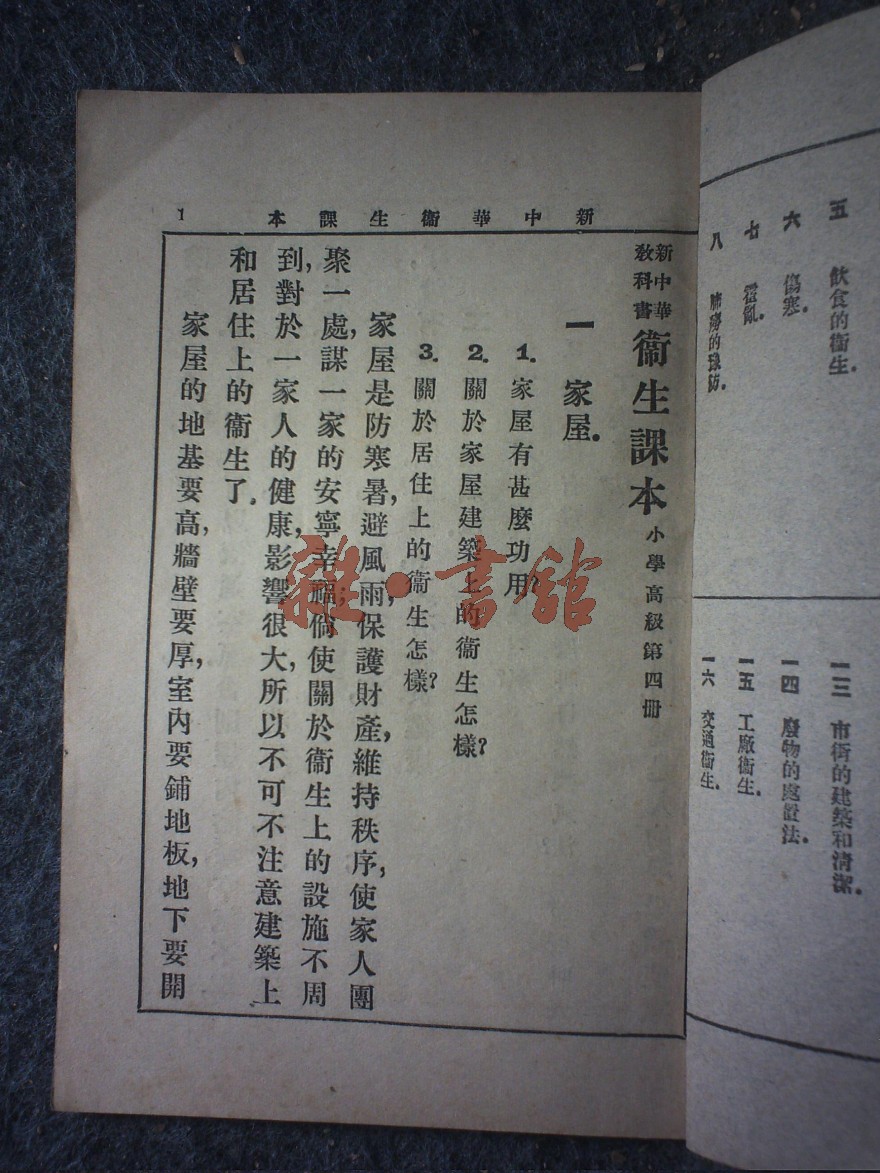 五 飲食的衞生.
六 傷寒.
七 霍亂.
八 肺癆的豫防.
一三 市街的建築和清潔.
一四 廢物的處置法.
一五 工廠衞生.
一六 交通衞生.
新中華衞生課本
1
新中華
教科書
衞生課本 小學高級第四册
一 家屋.
1. 家屋有甚麼功用?
2. 關於家屋建築上的衞生怎樣?
3. 關於居住上的衞生怎樣?
家屋是防寒暑,避風雨,保護財產,維持秩序,使家人團
聚一處,謀一家的安寧幸福;倘使關於衞生上的設施不周
到,對於一家人的健康,影響很大,所以不可不注意建築上
和居住上的衞生了.
家屋的地基要高,牆壁要厚,室內要鋪地板,地下要開
雜·書館